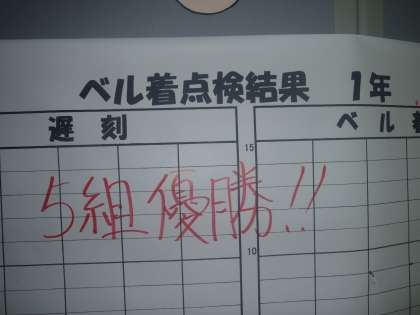 ベル着点検結果 1年
遅刻
ベル着
15
5組優勝!!
10